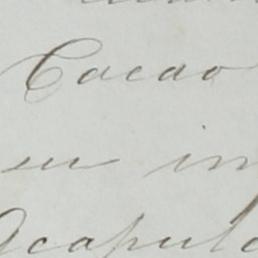 Cacao
en in
Acapulc